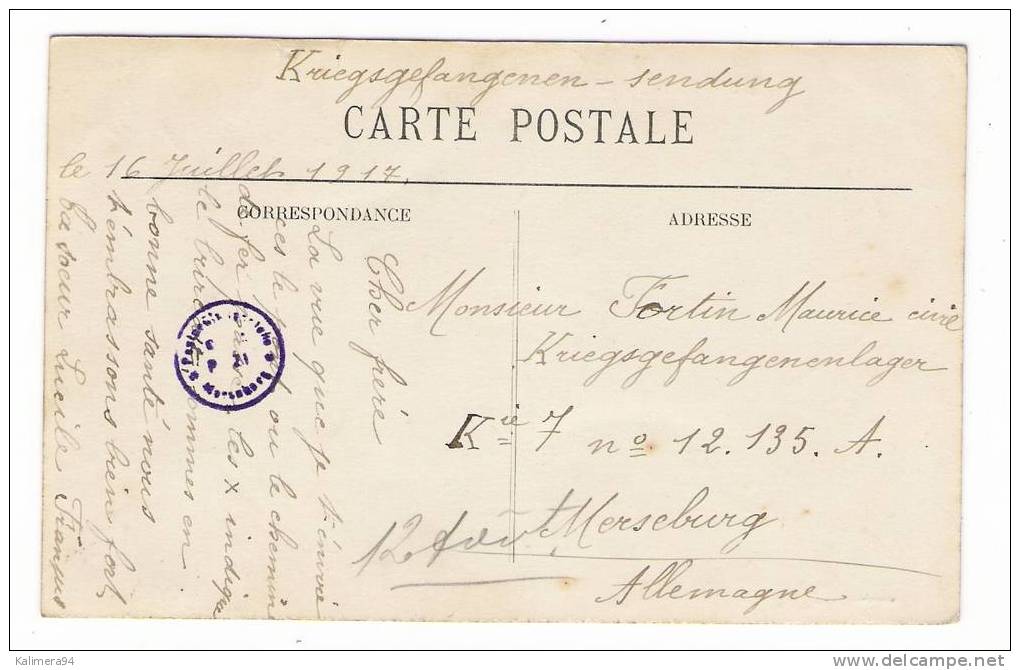 Kriegsgefangenen - sendung
CARTE POSTALE
le 16 Juillet 1917.
CORRESPONDANCE
ADRESSE
Cher frère
La vue que je t'envoie
ces le pont ou le chemin
de fer passe les x indique
le
sommes en
bonne santé nous
t'embrassons bien fort
ta soeur Lucile François
Monsieur Fortin Maurice civil
Kriegsgefangenenlager
Kie 7 no 12.135. A.
Merseburg
Allemagne
12 Août
Kalimera94
delcampe.net